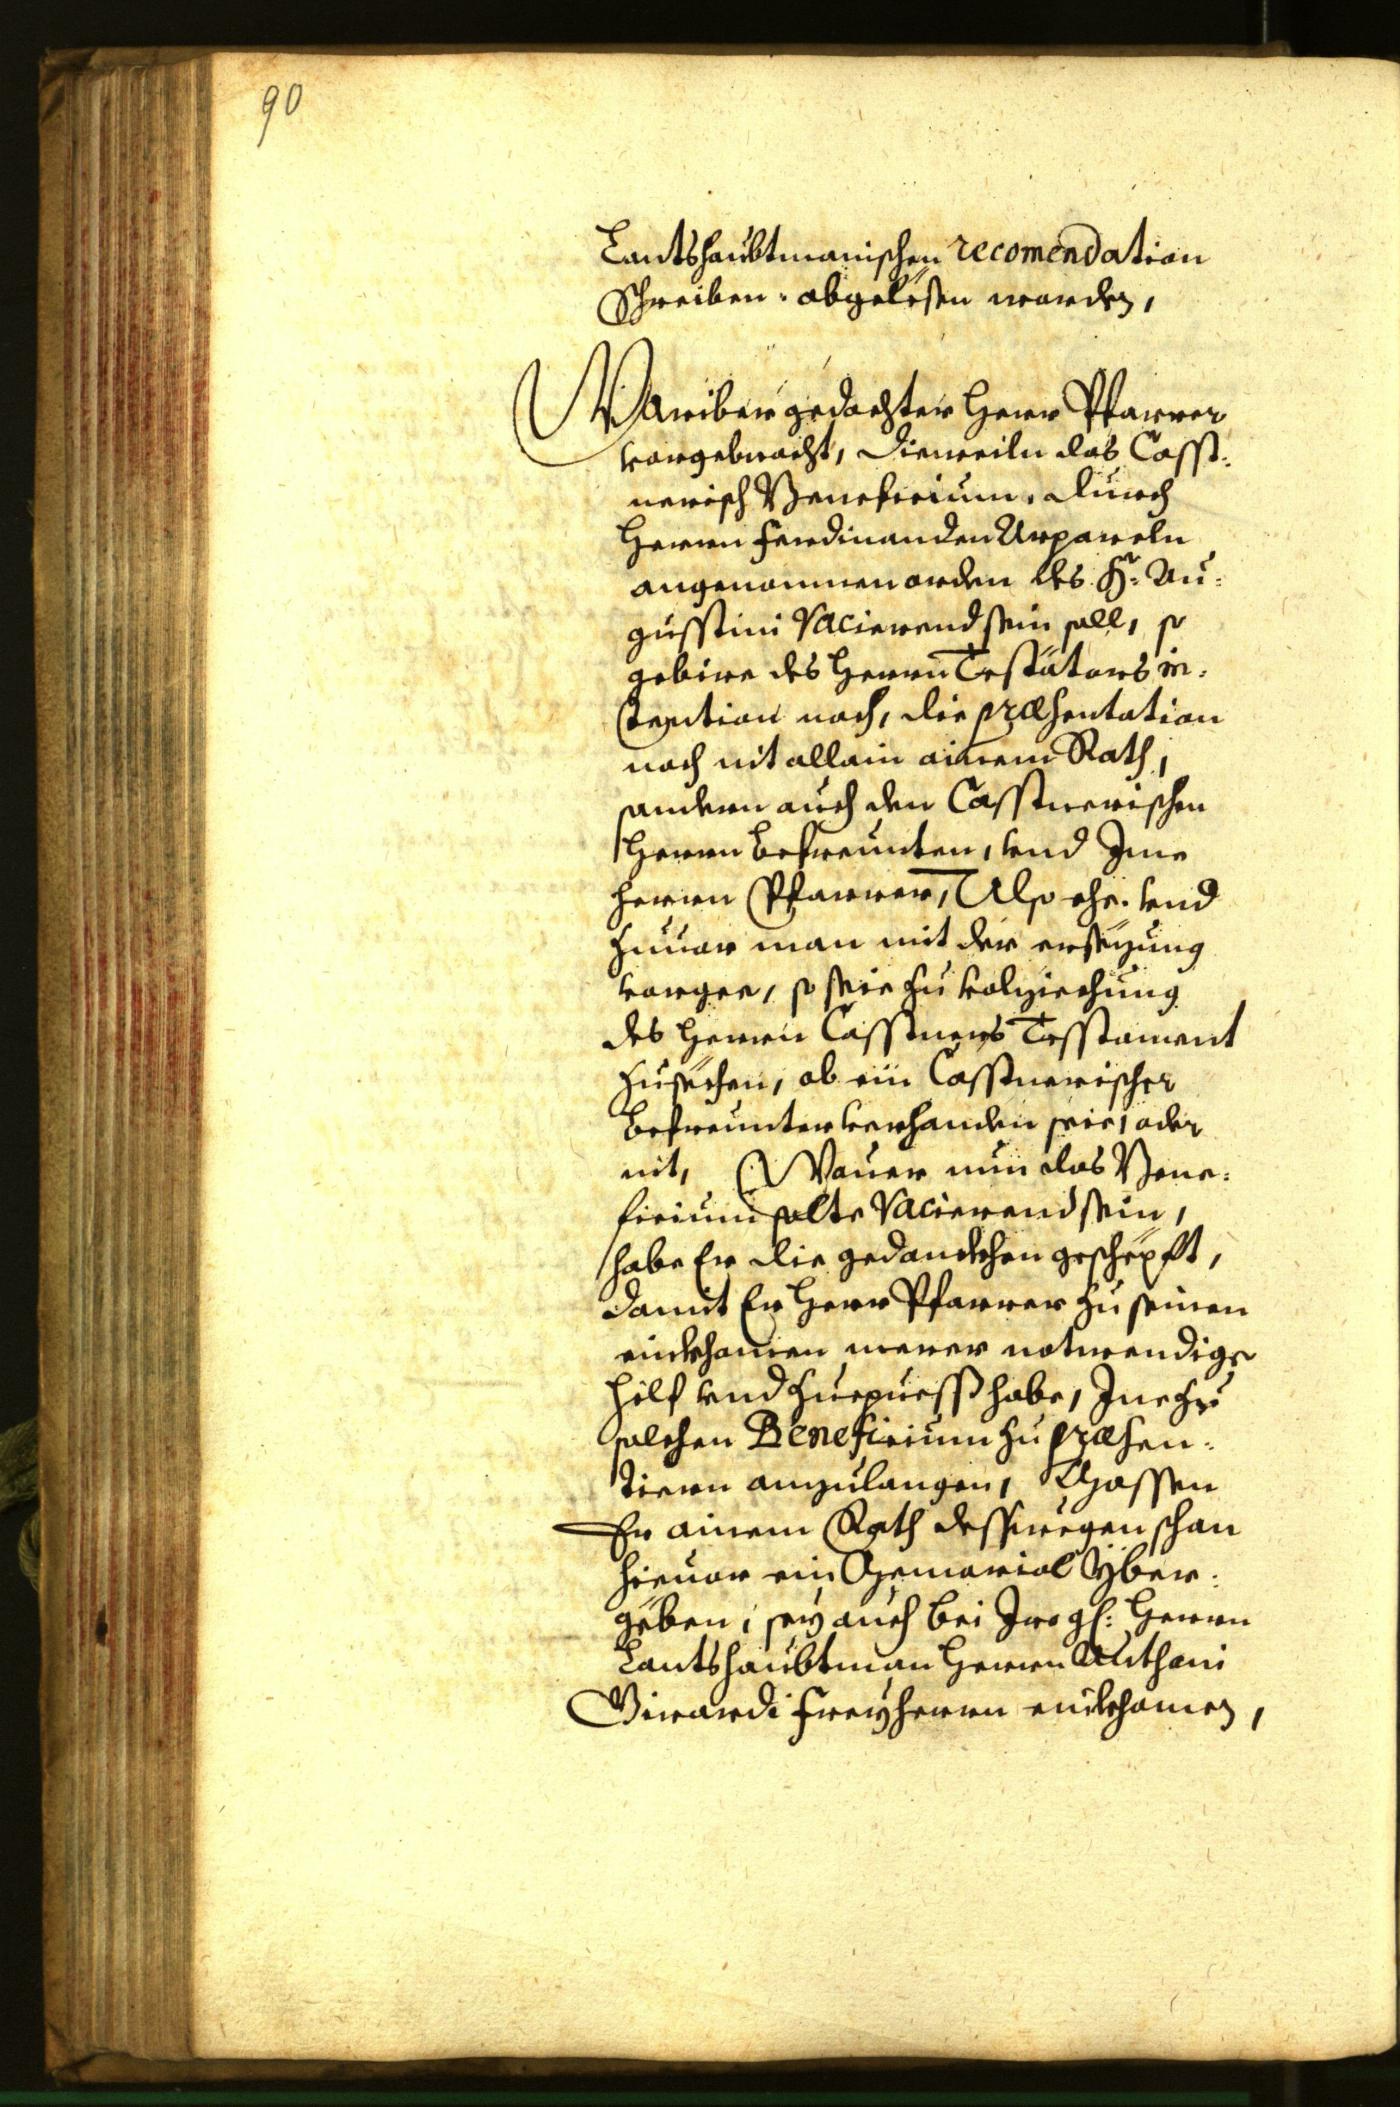 90
Lantshaubtmanischen recomendation
Schreiben. abgelesen worden,
Wariber gedachter Herr Pfarrer
vorgebracht, dieweiln das Casst¬
nerisch Beneficium, durch
Herrn Ferdinanden
angenommen orden des H: Au¬
gusstini Vacierend sein soll, so
gebire des Herrn Testators in¬
tention nach, die præsentation
noch nit allain ainem Rath,
sondern auch den Casstnerischen
Herrn befreunten, vnd Ime
herrn Pfarrer, Also ehe. vnd
zuuor man mit der ersezung
vorgee, so seie zu volziechung
des Herrn Casstners Tesstament
zusechen, ob ein Casstnerischer
befreunter verhanden seie, oder
nit, Wouer nun das Bene¬
ficium solte Vacierend sein,
habe Er die gedanckhen geschepft,
damit Er Herr Pfarrer zu seinen
einkhomen merer notwendige
hilf vnd zuepuess habe, Ine zu
solchen Beneficium zu præsen¬
tiern anzulangen, Massen
Er ainem Rath desswegen schon
hieuor ein Memorial yber¬
geben, sey auch bei Iro gl: Herrn
Lantshaubtman Herrn Anthoni
Girardi Freyherrn einkhomen,